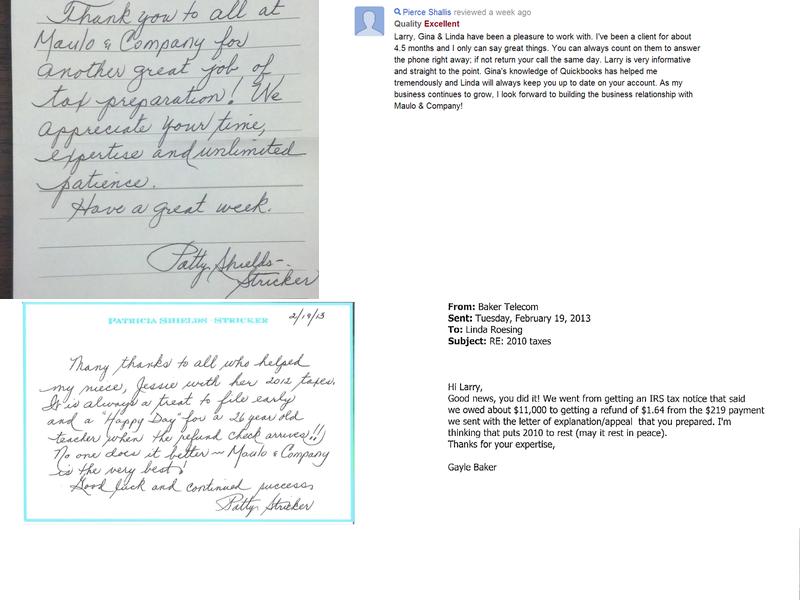 Thank you to all at
Maulo & Company for
another great job of
tax preparation! We
appreciate your time,
expertise and unlimited
patience.
Have a great week.
Patty Shields-
Stricker
Pierce Shallis reviewed a week ago
Quality Excellent
Larry, Gina & Linda have been a pleasure to work with. I've been a client for about
4.5 months and I only can say great things. You can always count on them to answer
the phone right away; if not return your call the same day. Larry is very informative
and straight to the point. Gina's knowledge of Quickbooks has helped me
tremendously and Linda will always keep you up to date on your account. As my
business continues to grow, I look forward to building the business relationship with
Maulo & Company!
PATRICIA SHIELDS-STRICKER
2/19/13
Many thanks to all who helped
my niece, Jessie with her 2012 taxes.
It is always a treat to file early
and a "Happy Day" for a 26 year old
teacher when the refund check arrives!!
No one does it better ~ Maulo & Company
is the very best!
Good luck and continued success
Patty Stricker
From: Baker Telecom
Sent: Tuesday, February 19, 2013
To: Linda Roesing
Subject: RE: 2010 taxes
Hi Larry,
Good news, you did it! We went from getting an IRS tax notice that said
we owed about $11,000 to getting a refund of $1.64 from the $219 payment
we sent with the letter of explanation/appeal that you prepared. I'm
thinking that puts 2010 to rest (may it rest in peace).
Thanks for your expertise,
Gayle Baker